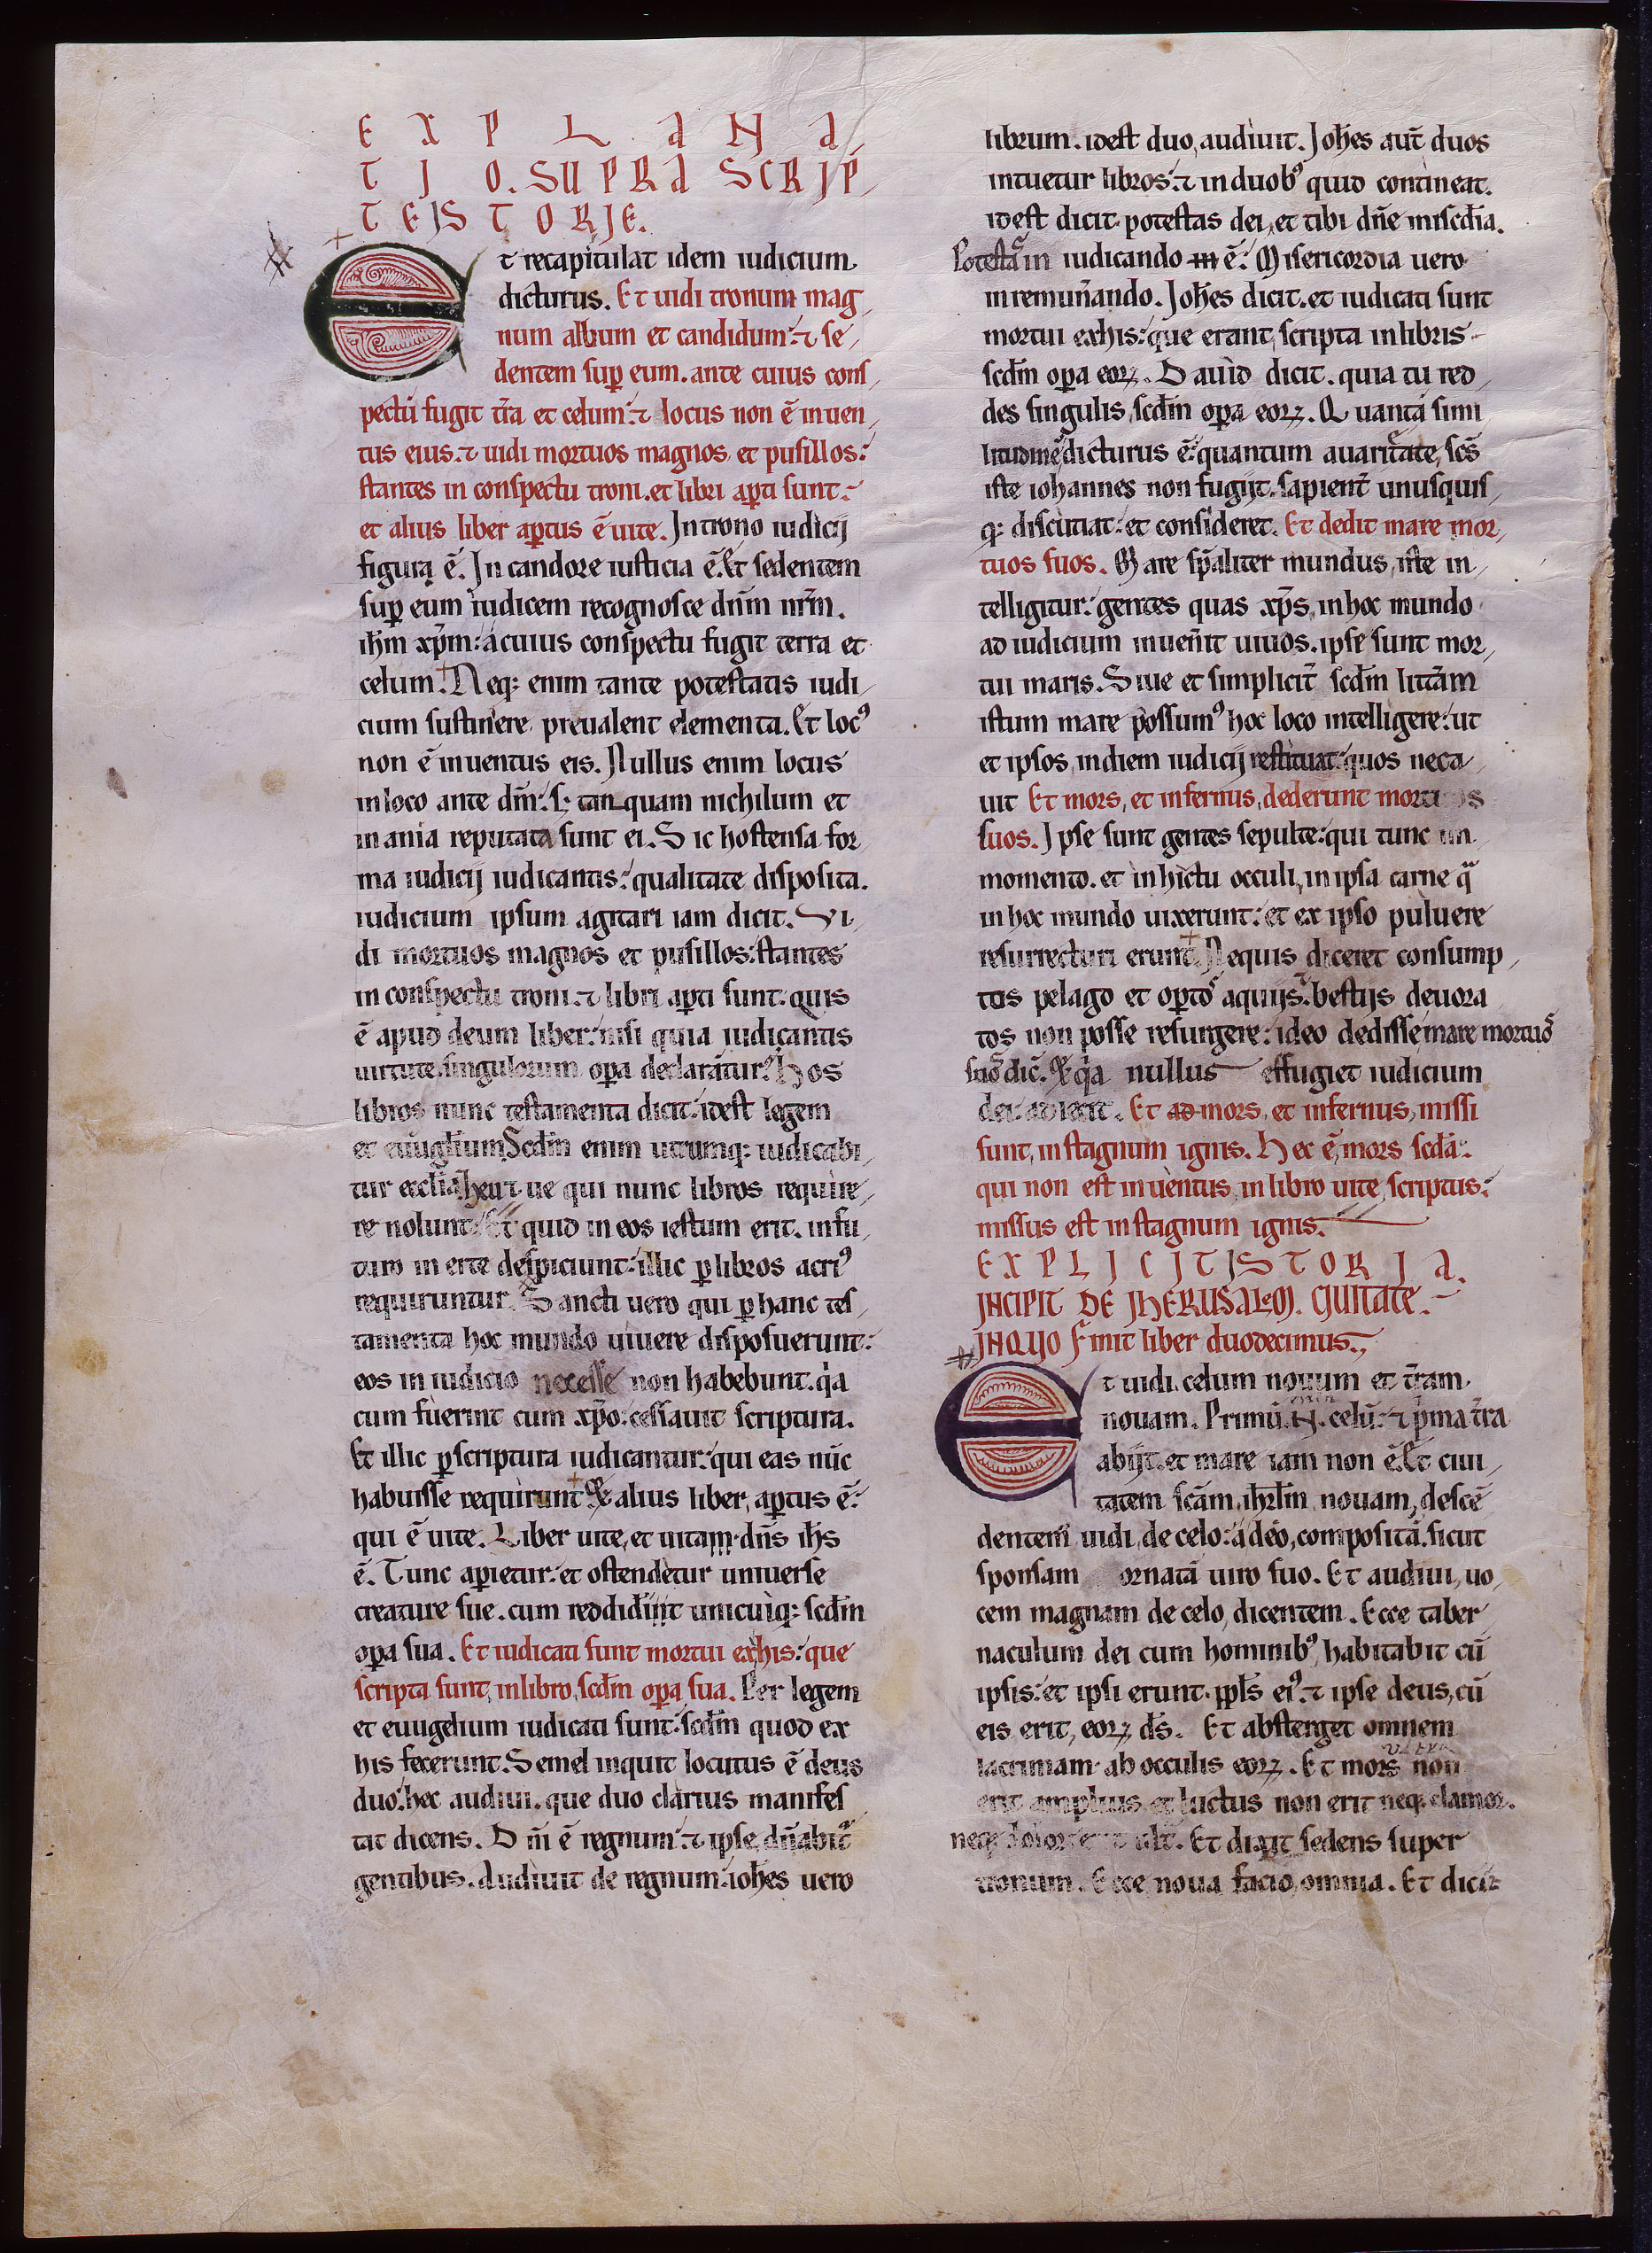 EXPLANA
TJO. SUPRA SCRJP,
TE JSTORJE.
Et recapitulat idem iudicium
dicturus. Et uidi tronum mag
num album et candidum: ⁊ se,
dentem sup̱ eum. ante cuius cons,
pectū fugit tr̄a et celum: ⁊ locus non ē inuen,
tus eius. ⁊ uidi mortuos magnos et pusillos:
stantes in conspectu troni. et libri ap̱ti sunt:
et alius liber ap̱tus ē uite. In trono iudicij
figura ē. In candore iusticia ē. Et sedentem
sup̱ eum iudicem recognosce dn̄m nr̄m.
ih̄m xp̄m: a cuius conspectu fugit terra et
celum. Neq; enim tante potestatis iudi,
cium sustinere preualent elementa. Et locꝰ
non ē inuentus eis. Nullus enim locus
in loco ante dm̄: s; tanquam nichilum et
inania reputata sunt ei. Sic hostensa for,
ma iudicij iudicantis: qualitate disposita.
iudicium ipsum agitari iam dicit. Vi,
di mortuos magnos et pusillos: stantes
in conspectu troni. ⁊ libri ap̱ti sunt. quis
ē apud deum liber: nisi quia iudicantis
uirtute singulorum op̱a declarātur. Hos
libros nunc testamenta dicit. idest legem
et euuglīum. Scd̄m enim utrumq; iudicabi,
tur ecclīa. heu ⁊ ue qui nunc libros require,
re nolunt. Et quid in eos iestum erit. in fu,
despiciunt: illic p̱ libros acriꝰ
requiruntur. Sancti uero qui p̱ hanc tes,
tamenta hoc mundo uiuere disposuerunt:
eos in iudicio necesse non habebunt. qͥa
cum fuerint cum xp̄o: cessauit scriptura.
Et illic p̱ scriptura iudicantur: qui eas nūc
habuisse requirunt alius liber, ap̱tus ē:
qui ē uite. Liber uite, et uitam dn̄s ih̄s
ē. Tunc ap̱ietur: et ostendetur uniuerse
creature sue. cum reddid̄int unicuiq; scd̄m
op̱a sua. Et iudicati sunt mortui ex his: que
scripta sunt, in libro, scd̄m op̱a sua. Per legem
et euugelium iudicati sunt: scd̄m quod ex
his fecerunt. Semel inquit locutus ē deus
duo. hec audiui. que duo clarius manifes
tat dicens. Dn̄i ē regnum: ⁊ ipse dn̄abit
gentibus. Audiuit de regnum: ioh̄es uero
librum. idest duo, audiuit. Joh̄es aut̄ duos
intuetur libros: ⁊ in duobꝰ quid contineat.
idest dicit potestas dei, et tibi dn̄e miscd̄ia.
Potestas in iudicando in ē: Misericordia uero
in remun̄ando. Joh̄es dicit. et iudicati sunt
mortui ex his: que erant, scripta in libris
scd̄m op̱a eoꝝ. Dauid dicit. quia tu red,
des singulis, scd̄m op̱a eoꝝ. Quanta simi
litudine dicturus ē: quantum auaritate, scs̄
iste iohannes non fugijt. sapient̄ unusquis,
q; discutiat: et consideret. Et dedit mare mor,
tuos suos. Mare sp̄aliter mundus, iste in,
telligitur: gentes quas xp̄s, in hoc mundo
ad iudicium inuen̄it uiuos. ipse sunt mor,
tui maris. Siue et simplicit̄ scd̄m litt̄am
istum mare possumꝰ hoc loco intelligere: ut
et ipsos, in diem iudicij restituat: quos neca,
uit Et mors, et infernus, dederunt mortuos
suos. Ipse sunt gentes sepulte: qui tunc in
momento. et in hictu occuli, in ipsa carne qͣ
in hoc mundo uixerunt: et ex ipso puluere
resurrecturi erunt. Nequis diceret consump,
tos pelago et op̱tos aquijs. bestijs deuora
tos non posse resurgere: ideo dedisse mare mortuos
suos dic̄. Et qͥa nullus effugiet iudicium
dei. adiecit. Et ad mors, et infernus, missi
sunt, in stagnum ignis. Hec ē, mors scd̄a:
qui non est inuentus, in libro uite, scriptus:
missus est in stagnum ignis.
EXPLJCJT JSTORJA.
JNCIPIT DE JHERUSALEM. CJUITATE.
JNQUO Finit liber duodecimus.
Et uidi celum nouum et tr̄am
nouam. Primū. N. celū: ⁊ pͥma tr̄a
abijt. et mare iam non ē. Et ciui,
tatem scām, ih̄rlm̄, nouam, descē
dentem uidi, de celo: a deo, compositā. sicut
sponsam ornatā uiro suo. Et audiui, uo,
cem magnam de celo, dicentem. Ecce taber
naculum dei cum hominibꝰ, habitabit cū
ipsis: et ipsi erunt. ppl̄s eiꝰ. ⁊ ipse deus, cū
eis erit, eoꝝ ds̄. Et absterget omnem
lacrimam ab occulis eoꝝ. Et mors non
erit amplius et luctus non erit neq; clamor.
neq; dolor Et dixit sedens super
tronum. Ecce noua facio, omnia. Et dicit